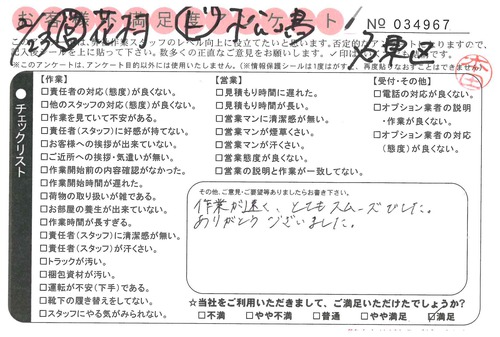 お客様満足度アンケート
No 034967
※このアンケートは、アンケート目的以外には使用いたしません。(※情報保護シールは1度はがすと、再度貼りなおすことはできません)
チェックリスト
【作業】
□責任者の対応(態度)が良くない。
□他のスタッフの対応(態度)が良くない。
□作業を見ていて不安がある。
□責任者(スタッフ)に好感が持てない。
□お客様への挨拶が出来ていない。
□ご近所への挨拶・気遣いが無い。
□作業開始前の内容確認がなかった。
□作業開始時間が遅れた。
□荷物の取り扱いが雑である。
□お部屋の養生が出来ていない。
□作業時間が長すぎる。
□責任者(スタッフ)に清潔感が無い。
□責任者(スタッフ)が汗くさい。
□トラックが汚い。
□梱包資材が汚い。
□運転が不安(下手)である。
□靴下の履き替えをしてない。
□スタッフにやる気がみられない。
【営業】
□見積もり時間に遅れた。
□見積もり時間が長い。
□営業マンに清潔感が無い。
□営業マンが煙草くさい。
□営業マンが汗くさい。
□営業態度が良くない。
□営業の説明と作業が一致してない。
【受付・その他】
□電話の対応が良くない。
□オプション業者の説明・作業が良くない。
□オプション業者の対応(態度)が良くない。
その他、ご意見・ご要望等ありましたらお書き下さい。
作業が速く、とてもスムーズでした。
ありがとうございました。
☆当社をご利用いただきまして、ご満足いただけたでしょうか?
□不満 □やや不満 □普通 □やや満足 ☑満足